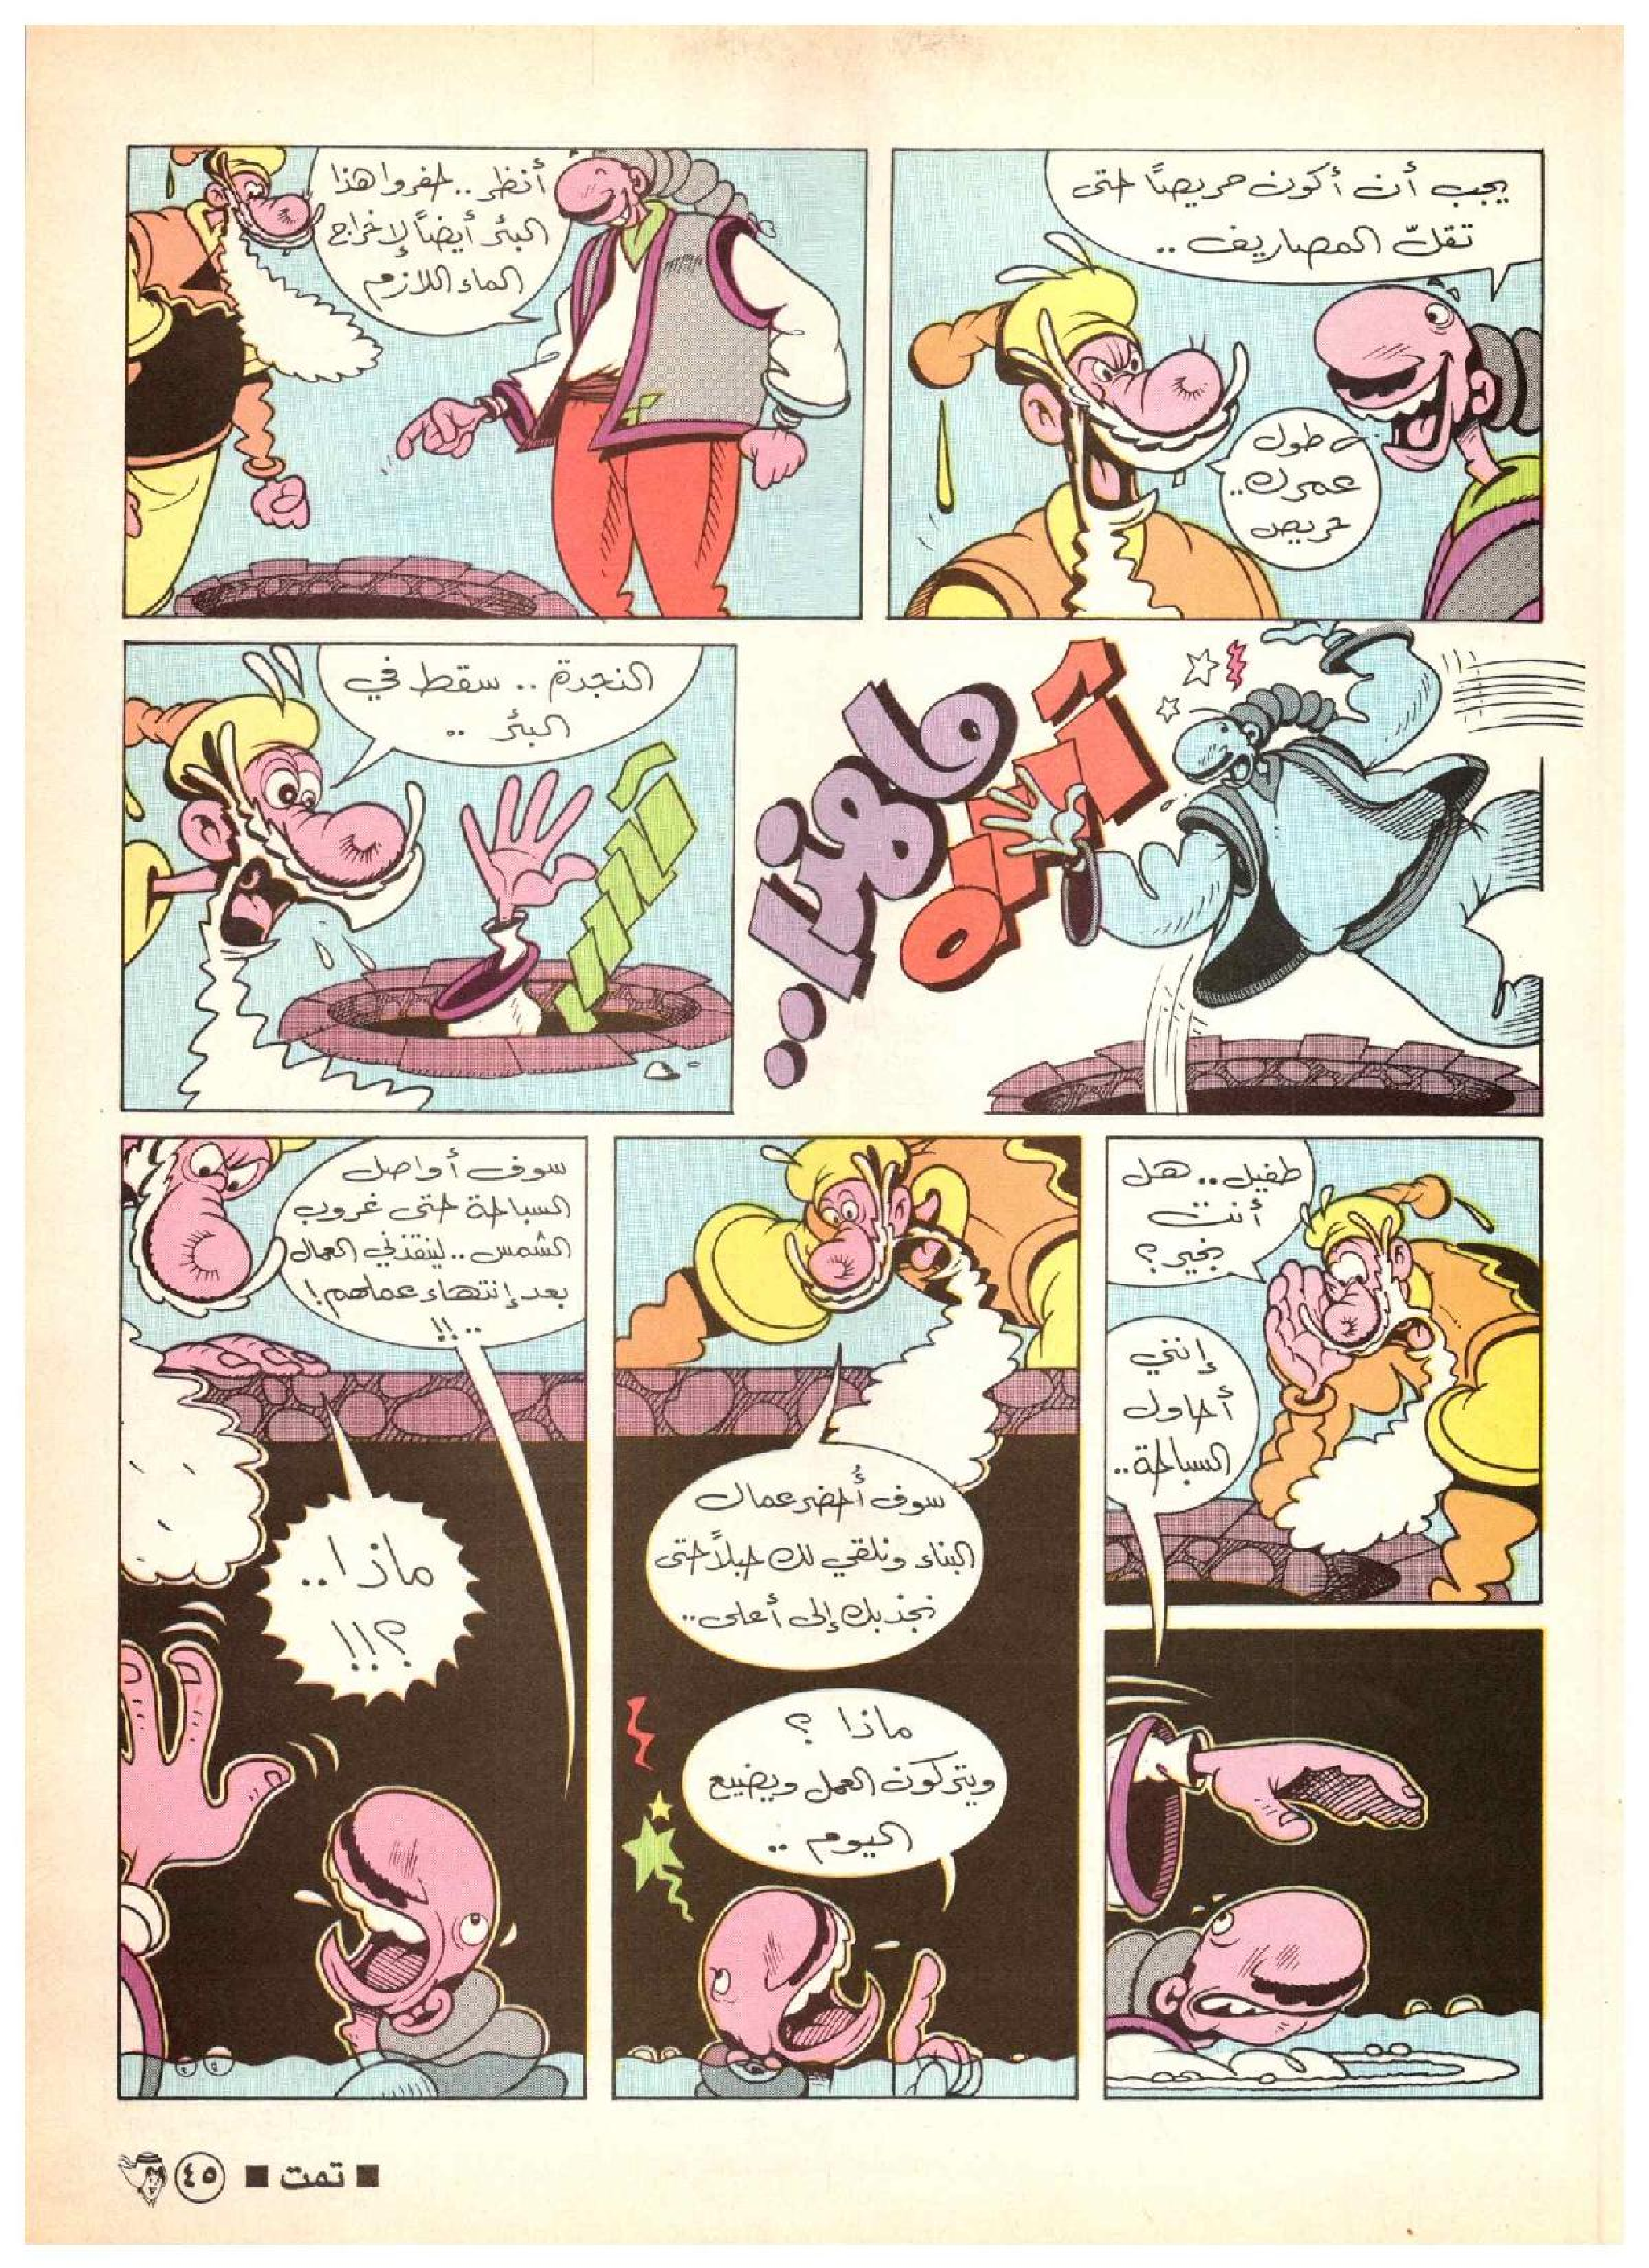 يجب أن أكون حريصًا حتى
تقلّ المصاريف ..
طول
عمرك..
حريص
أنظر .. حفروا هذا
البئر أيضاً لإخراج
الماء اللازم
ماهذا..
النجدة .. سقط في
البئر ..
طفيل.. هل
أنت
بخير؟
إنني
أحاول
السباحة..
سوف أُحضر عمال
البناء ونلقي لك حبلاً حتى
نجذبك إلى أعلى..
ماذا ؟
ويتركون العمل ويضيع
اليوم ..
سوف أواصل
السباحة حتى غروب
الشمس .. لينقذني العمال
بعد إنتهاء عملهم!
..!!
ماذا..
؟!!
■ تمت ■ ٤٥